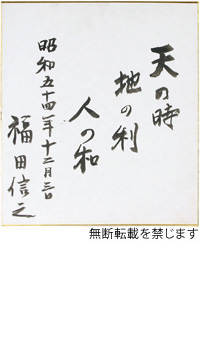 天の時
地の利
人の和
昭和五十四年十二月三日
福田信之
無断転載を禁じます